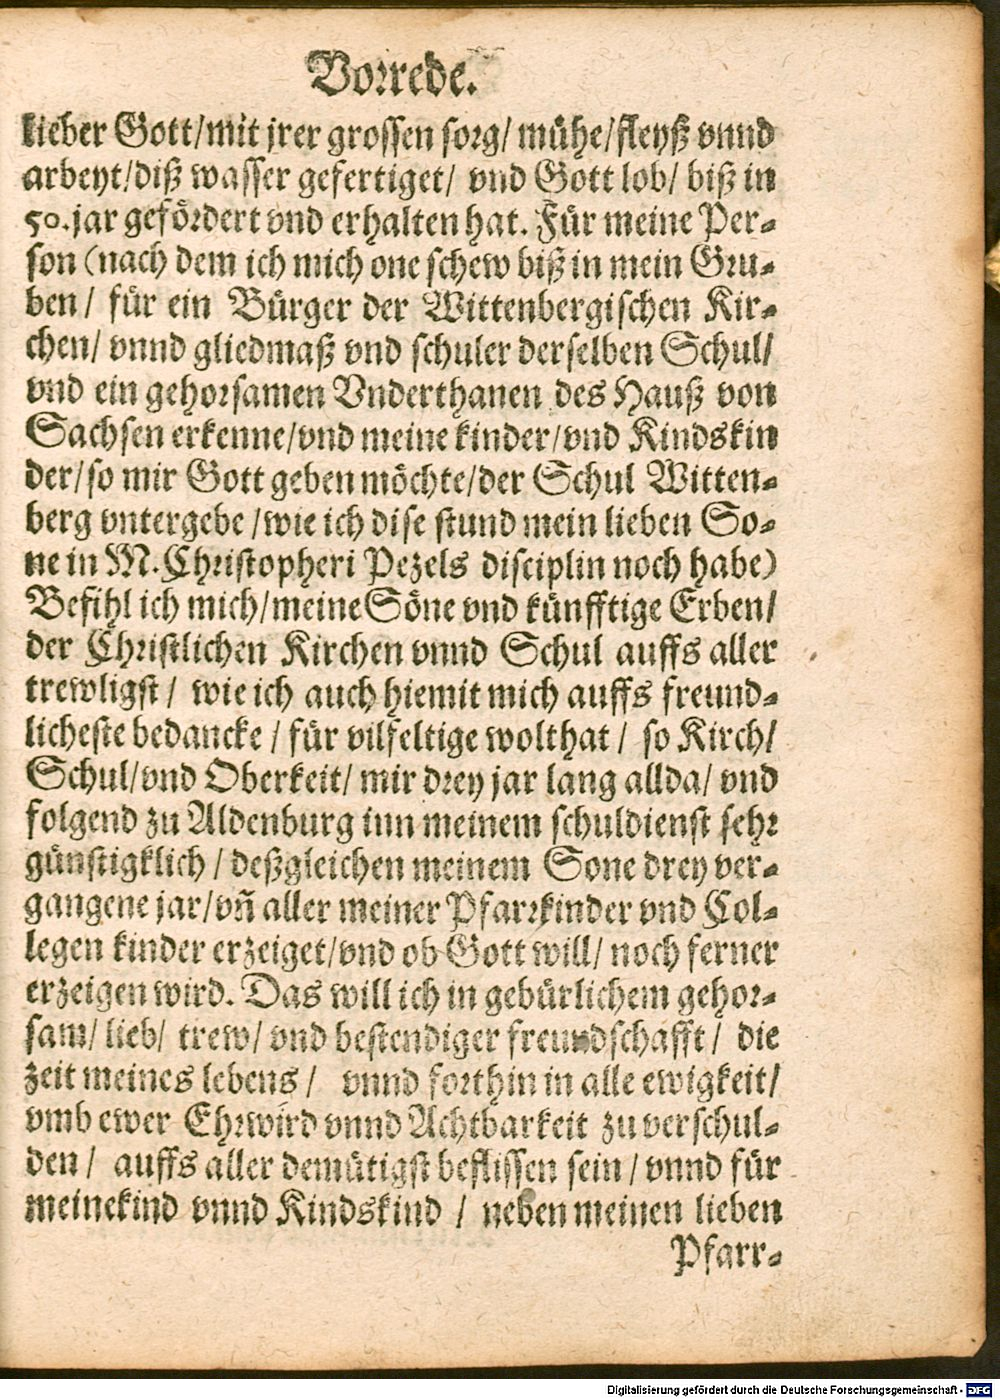 Vorrede.
lieber Gott/mit jrer grossen sorg/ mühe/fleyß vnnd
arbeyt/diß wasser gefertiget/ vnd Gott lob/ biß in
50.jar gefördert vnd erhalten hat. Für meine Per-
son (nach dem ich mich one schew biß in mein Gru-
ben/ für ein Bürger der Wittenbergischen Kir-
chen/ vnnd gliedmaß vnd schuler derselben Schul/
vnd ein gehorsamen Vnderthanen des Hauß von
Sachsen erkenne/vnd meine kinder/vnd Kindskin
der/so mir Gott geben möchte/der Schul Witten-
berg vntergebe/wie ich dise stund mein lieben So-
ne in M.Christopheri Pezels disciplin noch habe)
Befihl ich mich/meine Söne vnd künfftige Erben/
der Christlichen Kirchen vnnd Schul auffs aller
trewligst/ wie ich auch hiemit mich auffs freund-
licheste bedancke/ für vilfeltige wolthat/ so Kirch/
Schul/vnd Oberkeit/ mir drey jar lang allda/ vnd
folgend zu Aldenburg inn meinem schuldienst sehr
günstigklich/ deßgleichen meinem Sone drey ver-
gangene jar/vñ aller meiner Pfarrkinder vnd Col-
legen kinder erzeiget/vnd ob Gott will/ noch ferner
erzeigen wird. Das will ich in gebürlichem gehor-
sam/ lieb/ trew/ vnd bestendiger freundschafft/ die
zeit meines lebens/ vnnd forthin in alle ewigkeit/
vmb ewer Ehrwird vnnd Achtbarkeit zu verschul-
den/ auffs aller demütigst beflissen sein/ vnnd für
meine kind vnnd Kindskind/ neben meinen lieben
Pfarr-
Digitalisierung gefördert durch die Deutsche Forschungsgemeinschaft - DFG